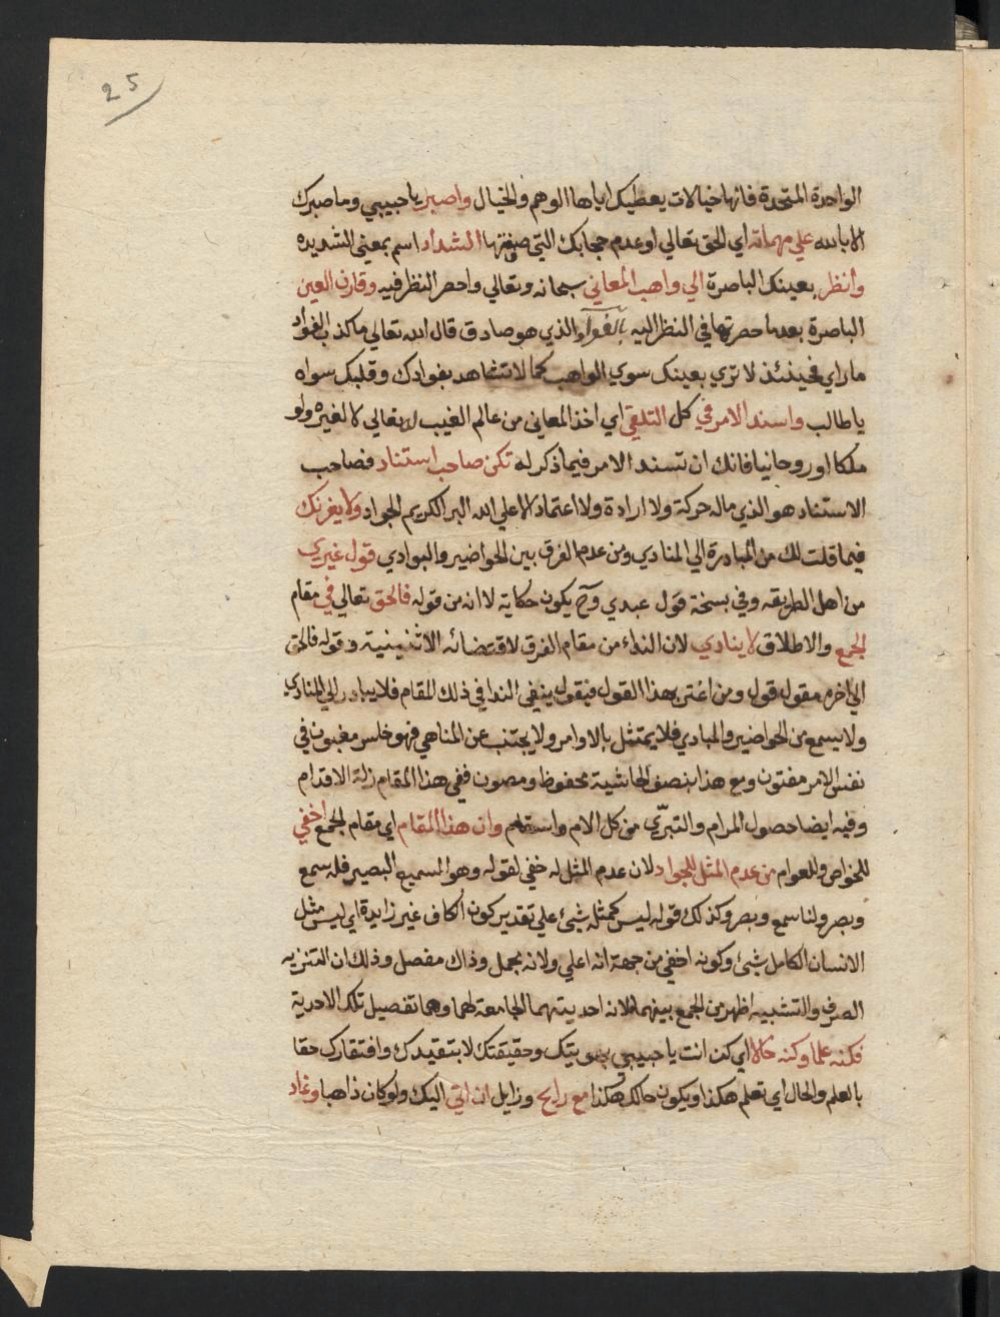 25
الواحدة المتحدة فانها خيالات يعطيك اياها الوهم والخيال واصبر يا حبيبي وما صبرك
الا بالله علي مهماته اي الحق تعالي او عدم حجابك التي صفتها الشداد اسم بمعني الشديده
وانظر بعينك الباصرة الي واهب المعاني سبحانه وتعالي واحصر النظر فيه وقارن العين
الباصرة بعد ما حصرتها في النظر اليه بالفواد الذي هو صادق قال الله تعالي ما كذب الفواد
ما راي فحينئذ لا تري بعينك سوي الواهب كما لا تشاهد بفوادك وقلبك سواه
يا طالب واسند الامر في كل التلقي اي اخذ المعاني من عالم الغيب له تعالي لا لغيره ولو
ملكا او روحانيا فانك ان تسند الامر فيما ذكر له تكن صاحب استناد فصاحب
الاستناد هو الذي ماله حركة ولا ارادة ولا اعتماد الا علي الله البر الكريم الجواد ولا يغرنك
فيما قلت لك من المبادرة الي المنادي ومن عدم الفرق بين الحواضير والبوادي قول غيري
من اهل الطريقه وفي بسخة قول عبدي وح يكون حكاية لا انه من قوله فالحق تعالي في مقام
الجمع والاطلاق لا ينادي لان النداء من مقام الفرق لاقتضائه الاثنينية وقوله فالحق
الي اخره مقول قول ومن اغتر بهذا القول فيقول ينفي الندا في ذلك المقام فلا يبادر الي المنادي
ولا يسمع من الحواضير والمبادي فلا يمتثل بالاوامر ولا يجتنب عن المناهي فهو خلس مغبون في
نفس الامر مفتون ومع هذا بنصف الحاشية محفوظ ومصون ففي هذا المقام زلة الاقدام
وفيه ايضا حصول المرام والتبرّي من كل الام واسقام وان هذا المقام اي مقام الجمع اخفي
للخواص وللعوام من عدم المثل للجواد لان عدم المثل له خفي لقوله وهو السميع البصير فله سمع
وبصر ولنا سمع وبصر وكذلك قوله ليس كمثله شيئ علي تقدير كون الكاف غير زايدة اي ليس مثل
الانسان الكامل شيئ وكونه اخفي من جهة انه اعلي ولانه مجمل وذاك مفصل وذلك ان التنزيه
الصرف والتشبيه اظهر من الجمع بينهما لانه احديتهما الجامعة لهما وهما تفصيل تلك الاحدية
فكنه علما وكنه حالا اي كن انت يا حبيبي بهويتك وحقيقتك لا بتقيدك وافتقارك حقا
بالعلم والحال اي تعلم هكذا ويكون حالك هكذا مع رايح وزايل ان اتي اليك ولو كان ذاهبا وغاد